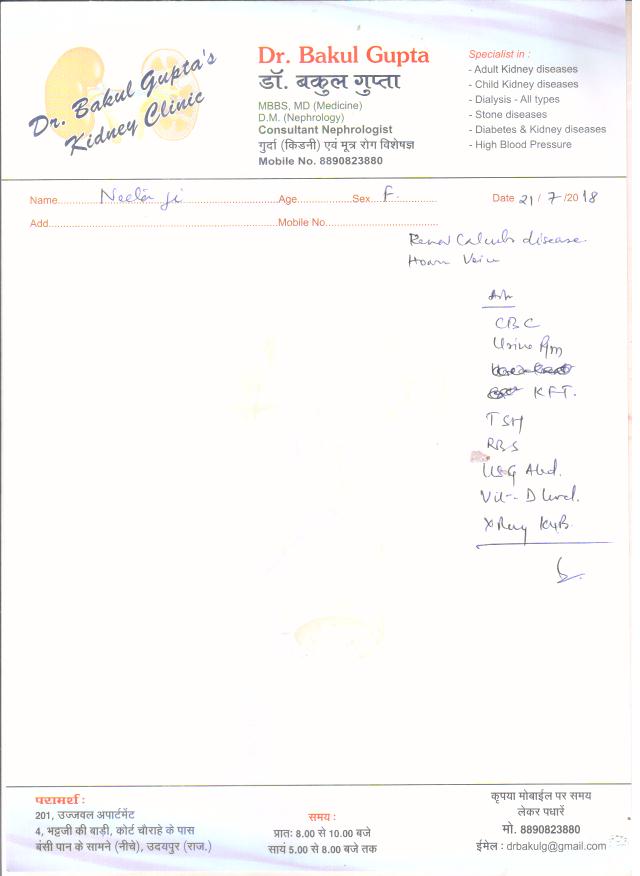 Dr. Bakul Gupta's
Kidney Clinic
Dr. Bakul Gupta
डॉ. बकुल गुप्ता
MBBS, MD (Medicine)
D.M. (Nephrology)
Consultant Nephrologist
गुर्दा (किडनी) एवं मूत्र रोग विशेषज्ञ
Mobile No. 8890823880
Specialist in :
- Adult Kidney diseases
- Child Kidney diseases
- Dialysis - All types
- Stone diseases
- Diabetes & Kidney diseases
- High Blood Pressure
Name Neeta ji Age Sex F. Date 21/7/2018
Add Mobile No.
Renal Calculs disease.
CBC
Urine R/m
KFT.
TSH
RBS
USG Abd.
Vit-D level.
X Ray KUB.
परामर्श :
201, उज्जवल अपार्टमेंट
4, भट्टजी की बाड़ी, कोर्ट चौराहे के पास
बंसी पान के सामने (नीचे), उदयपुर (राज.)
समय :
प्रातः 8.00 से 10.00 बजे
सायं 5.00 से 8.00 बजे तक
कृपया मोबाईल पर समय
लेकर पधारें
मो. 8890823880
ईमेल : drbakulg@gmail.com